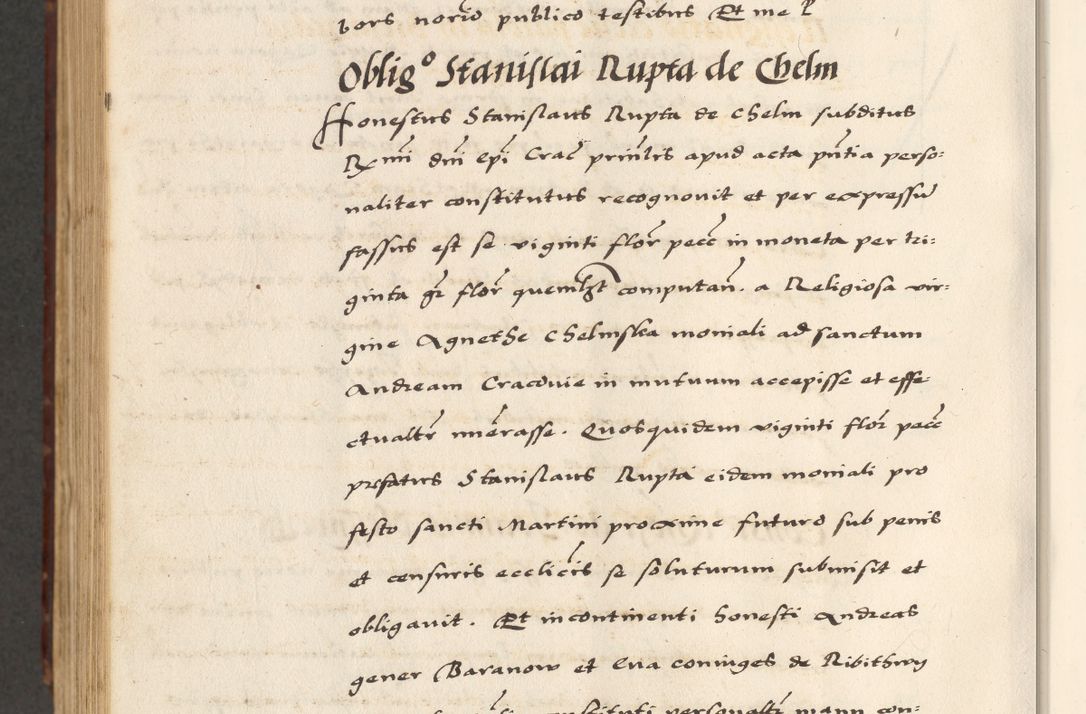 bors norio publico testibus Et me P
Obligo Stanislai Rupta de Chelm
Honestus Stanislaus Rupta de Chelm subditus
Rmi dni Epi Crac prinlis apud acta pntia perso:
naliter constitutus recognovit et per expressu
fassus est se viginti flor pecc in moneta per tri:
ginta gr flor quemlzt computan. a Religiosa vir:
gine Agnethe Chelmska moniali ad sanctum
Andream Cracovie in mutuum accepisse et effe:
ctualtr nuerasse. Quosquidem viginti flor pecc
prefatus Stanislaus Rupta eidem moniali pro
festo sancti Martini proxime futuro sub penis
et censuris ecclicis se soluturum submisit et
obligavit. Et incontinenti honesti Andreas
gener Baranow et Eva coniuges de Ribithwy
personaltr manu con: